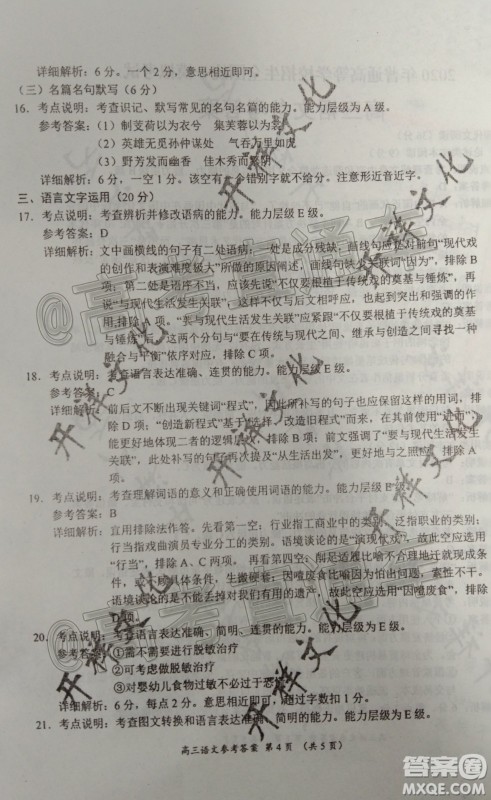 详细解析：6分。一个2分，意思相近即可。
（三）名篇名句默写（6分）
16. 考点说明：考查识记、默写常见的名句名篇的能力。能力层级为A级。
参考答案：（1）制芰荷以为衣兮 集芙蓉以为裳
（2）英雄无觅孙仲谋处 气吞万里如虎
（3）野芳发而幽香 佳木秀而繁阴
详细解析：6分，一空1分。该空有一个错别字就不给分。注意形近音近字。
三、语言文字运用（20分）
17. 考点说明：考查辨析并修改语病的能力。能力层级E级。
参考答案：D
详细解析：文中画横线的句子有二处语病，一处是成分残缺，画线句应是对前句“现代戏
的创作和表演难度极大”所做的原因阐述，因此画线句应有“因为”，排除B
项；第二处是语序不当，应该先说“不仅要根植于传统戏的奠基与锤炼”，再
说“与现代生活发生关联”，文中语序与后文内容不相呼应，且“不仅”的位
置应在“要”前，排除A项。“不仅要根植于传统戏的奠基与锤炼，
更要与现代生活发生关联”与“要在传统与现代之间、继承与创造之间寻找一种
融合与平衡”依次呼应，排除C项。
18. 考点说明：考查语言表达准确、连贯的能力。能力层级E级。
参考答案：
详细解析：前后文不断出现关键词“程式”，因此所补写的句子也应保留这一主
项；“创造新程式”基于“选择、改造旧程式”而来，因此使用“进而”，
能更好地体现二者的逻辑层次，排除B项；根据前文的“要与现代生活发生
关联”，此处补写的句子中提及“从生活出发”，更好地与之照应，排除A
项。
19. 考点说明：考查理解词语的意义和正确使用词语的能力。能力层级E级。
参考答案：B
详细解析：宜用排除法作答。先看第一空：行业指工商业中的类别，泛指职业的类别；
行当指戏曲演员专业分工的类别。语境谈论的是“演现代戏”，此空应选用
“行当”，排除A、C两项。再看第四空：削足适履比喻不合理地迁就现成
条件，或不顾具体条件，生搬硬套；因噎废食比喻由于怕出问题，索性不干。
语境谈论的是不能因为出现了问题就放弃了演出，故此空应选用“因噎废食”，排除
D项。
20. 考点说明：考查语言表达准确、简明、连贯的能力。能力层级为E级。
参考答案：①需不需要进行脱敏治疗
②可考虑做脱敏治疗
③对婴幼儿食物过敏不必过于恐慌
详细解析：6分，每点2分。意思相近即可，超过字数扣1分。
21. 考点说明：考查图文转换和语言表达的能力。能力层级为E级。
高三语文参考答案 第4页 （共5页）
开祥文化
开祥文化
开祥文化
开祥文化
@高考直通车
@高考直通车